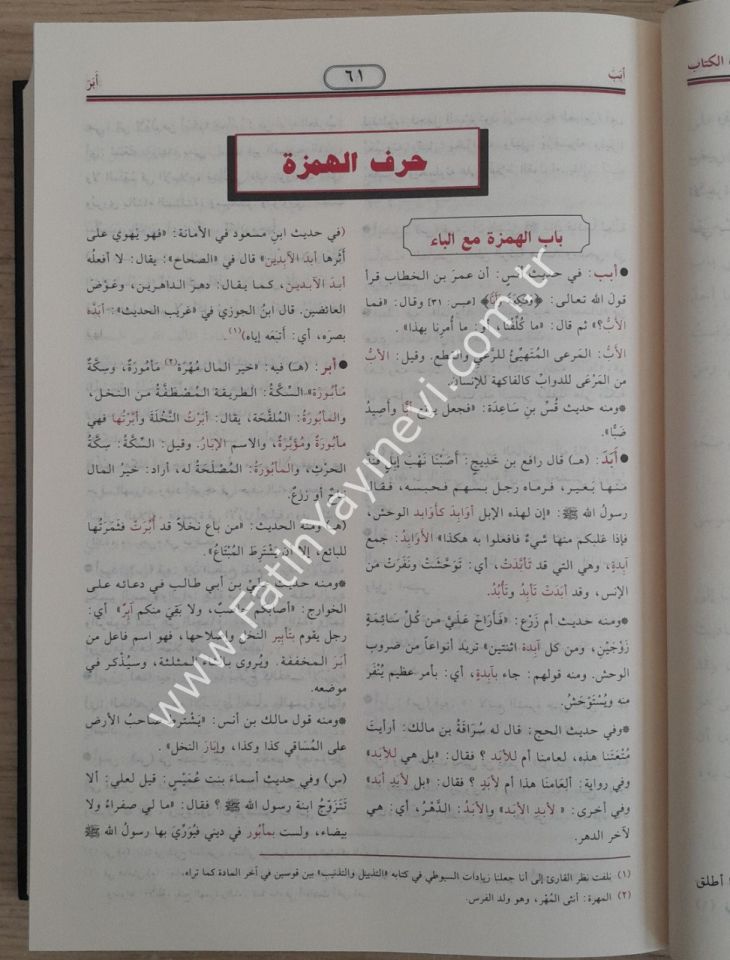 أبَبَ
٦١
أبَرَ
حرف الهمزة
باب الهمزة مع الباء
● أبب: في حديث أنس: أن عمر بن الخطاب قرأ
قول الله تعالى: ﴿وَفَاكِهَةً وَأَبًّا﴾ [عبس: ٣١] وقال: «فما
الأبُّ؟» ثم قال: «ما كُلِّفْنا، أو: ما أُمرنا بهذا».
الأبُّ: المرعى المُتهيِّئُ للرَّعْي والقطع. وقيل: الأبُّ
من المَرْعَى للدوابِّ كالفاكهة للإنسان.
● ومنه حديث قُسّ بن سَاعِدَة: «فجعل يرتع أبًّا وأصِيدُ
ضَبًّا».
● أبَدَ: (هـ) قال رافع بن خَدِيج: أصَبْنا نَهْب إبلٍ فندَّ
منها بَعير، فرماه رجل بسهم فحبسه، فقال
رسول الله ﷺ: «إن لهذه الإبل أوابِدَ كأوابد الوحش،
فإذا غلبكم منها شيءٌ فافعلوا به هكذا» الأوابدُ: جمع
آبدةٍ، وهي التي قد تأبَّدَتْ، أي: تَوحَّشَتْ ونَفَرَتْ من
الإنس، وقد أبَدَتْ تَأبِدُ وتَأبُدُ.
● ومنه حديث أم زَرْع: «فأراح عليَّ من كُلِّ سَائِمَةٍ
زَوْجَيْنِ، ومن كل آبدة اثنتين» تريد أنواعاً من ضروب
الوحش. ومنه قولهم: جاء بآبِدةٍ، أي: بأمر عظيم يُنْفَر
منه ويُسْتَوْحَشُ.
● وفي حديث الحج: قال له سُرَاقةُ بن مالك: أرأيتَ
مُتْعَتَنَا هذه، لعامنا أم للأبد؟ فقال: «بل هي للأبد»
وفي رواية: ألِعَامنا هذا أم لأبَدٍ؟ فقال: «بل لأبَدِ أبَد»
وفي أخرى: «لأبدِ الأبَد» والأبَدُ: الدَّهْرُ، أي: هي
لآخر الدهر.
(في حديث ابن مسعود في الأمانة: «فهو يَهْوي على
أثرها أبدَ الآبدِين» قال في «الصحاح»: يقال: لا أفعلُه
أبدَ الآبدين، كما يقال: دهرَ الداهرين، وعَوْضَ
العائضين. قال ابن الجوزي في «غريب الحديث»: أبَدَّه
بصره، أي: أتبَعه إياه)(١).
● أبر: (هـ) فيه: «خير المال مُهْرَة(٢) مأمُورَة، وسِكَّةٌ
مَأبُورَة» السِّكَّةُ: الطريقة المُصْطَفَّةُ من النخل،
والمأبُورَةُ: المُلقَّحَة، يقال: أبَرْتُ النَّخْلَةَ وأبَّرْتُها فهي
مأبورَةٌ ومُؤَبَّرَة، والاسم الإبَارُ. وقيل: السِّكَّةُ: سِكَّةُ
الحَرْث، والمأبُورَةُ: المُصْلَحَةُ له، أراد: خَيرُ المال
نتاجٌ أو زرعٌ.
(هـ) ومنه الحديث: «من باع نخلاً قد أُبِّرَتْ فثمَرَتُها
للبائع، إلا أن يَشْتَرِطَ المُبْتَاعُ».
● ومنه حديث علي بن أبي طالب في دعائه على
الخوارج: «أصابكم حاصِبٌ، ولا بقيَ منكم آبِرٌ» أي:
رجل يقوم بتَأبِير النخل وإصلاحها، فهو اسم فاعل من
أبَرَ المخففة. ويُروى بالثاء المثلثة، وسيُذْكر في
موضعه.
● ومنه قول مالك بن أنس: «يَشْترط صاحبُ الأرض
على المُسَاقي كذا وكذا، وإبَارَ النخل».
(س) وفي حديث أسماءَ بنت عُمَيْسٍ: قيل لعلي: ألا
تَتَزَوَّجُ ابنة رسول الله ﷺ؟ فقال: «ما لي صفراءُ ولا
بيضاء، ولست بمأبُور في ديني فيُوَرِّيَ بها رسولُ الله ﷺ
(١) نلفت نظر القارئ إلى أنا جعلنا زيادات السيوطي في كتابه «التذييل والتذنيب» بين قوسين في آخر المادة كما تراه.
(٢) المهرة: أنثى المُهْر، وهو ولد الفرس.
الكتاب
أطلق
www.FatihYayinevi.com.tr